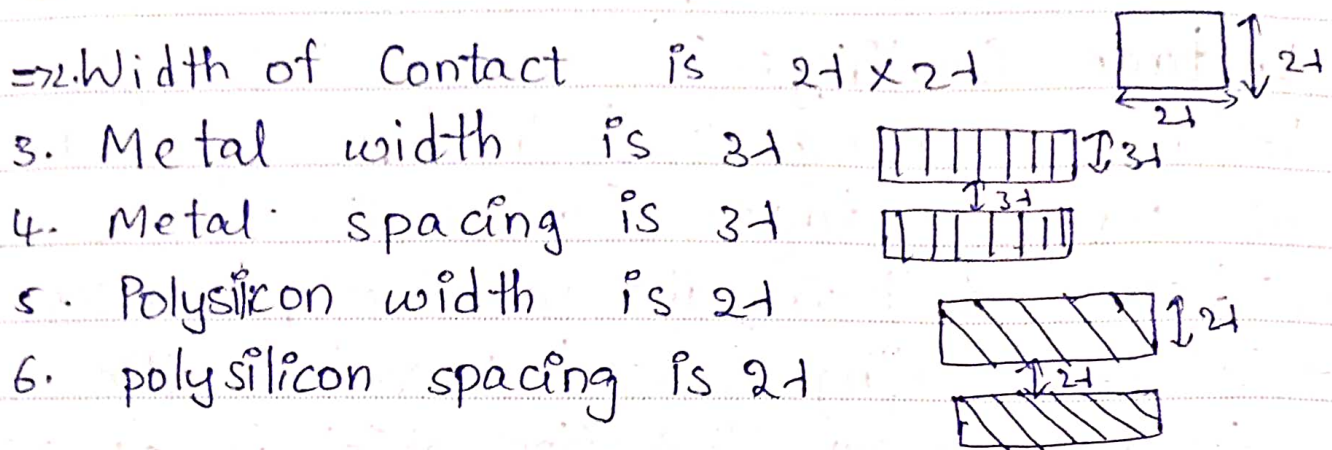 ⇒2. Width of Contact is 2λ × 2λ 2λ
2λ
3. Metal width is 3λ 3λ
3λ
4. Metal spacing is 3λ
5. Polysilicon width is 2λ 2λ
6. polysilicon spacing is 2λ 2λ